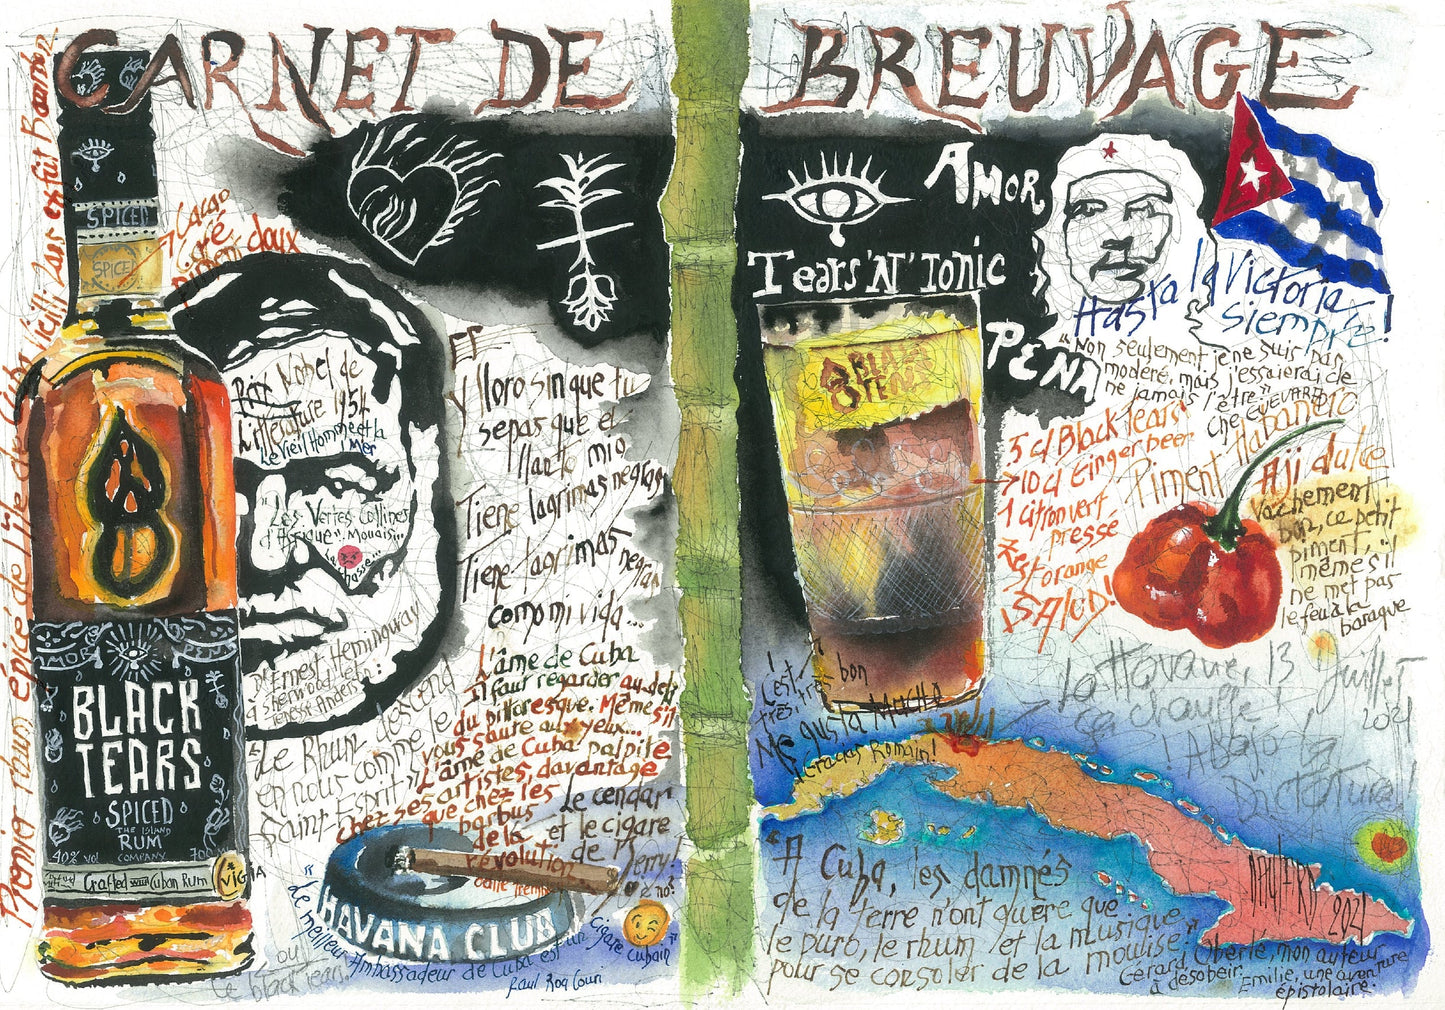 CARNET DE
BREUVAGE
Premier rhum épicé de l'île de Cuba
Vieilli 2 ans en fût Bourbon
SPICED
SPICED
Cacao
Café
Piment doux
BLACK
TEARS
AMOR
PENA
BLACK
TEARS
SPICED
THE ISLAND
RUM
COMPANY
40% vol
700
Crafted
Cuban Rum
VIGIA
ou
le black tears.
Prix Nobel de
Littérature 1954
Le Vieil Homme et la
Mer
"Les Vertes Collines
d'Afrique". Mouais...
D'Ernest Hemingway
à Sherwood et à
Tenesse Anders
"Le Rhum descend
en nous comme le
Saint-Esprit"
Y lloro sin que tu
sepas que el
llanto mio
Tiene lagrimas negras
Tiene lagrimas negras
como mi vida...
L'âme de Cuba
Il faut regarder au-delà
du pittoresque. Même s'il
vous saute aux yeux...
L'âme de Cuba palpite
chez ses artistes, davantage
que chez les
barbus
de la
révolution.
Le cendar
et le cigare
de
HAVANA CLUB
"Le meilleur Ambassadeur de Cuba est un cigare
cubain"
AMOR
Tears'N'Tonic
PENA
BLACK
TEARS
Hasta la Victoria
Siempre!
"Non seulement je ne suis pas
modéré, mais j'essaierai de
ne jamais l'être."
Che GUEVARA
5 cl Black Tears
10 cl Ginger beer
1 citron vert
pressé
Zest orange
SALUD!
Piment Habanero
Aji dulce
Vachement
bon, ce petit
piment,
même s'il
ne met pas
le feu à la
baraque
C'est très bon
Me gusta Mucho
Gracias Romain!
La Havane, 13 Juillet
2021
ça chauffe!
! Abajo la
Dictatura!!
"A Cuba, les damnés
de la terre n'ont guère que
le puro, le rhum et la musique
pour se consoler de la mouise."
2021
Gérard Oberlé, mon auteur
à désobéir.
Emilie, une aventure
épistolaire.